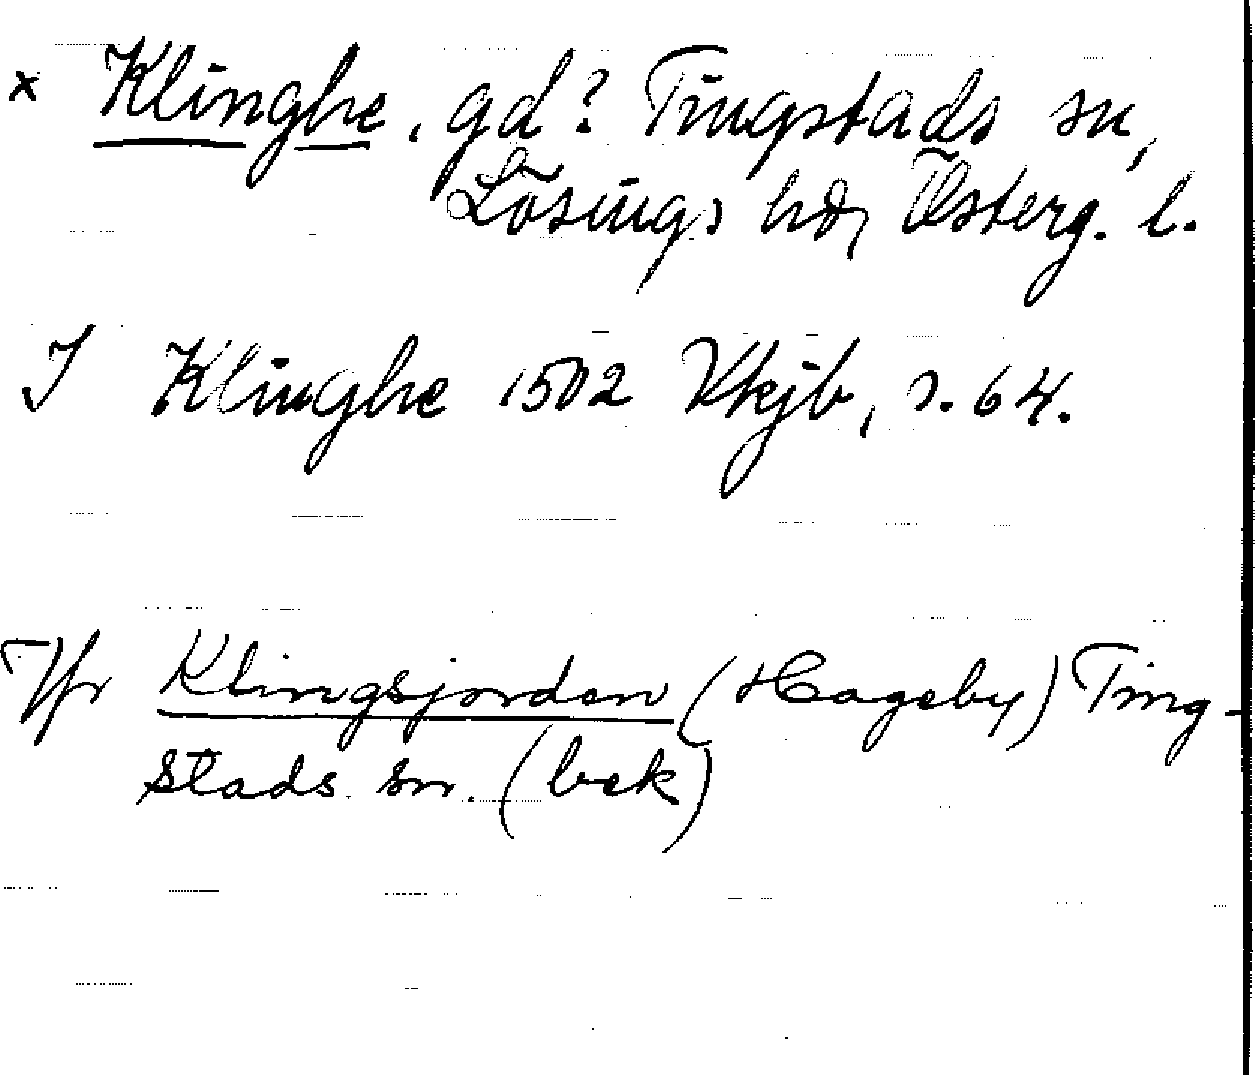 x Klinghe, gd? Tingstads sn,
Lösings hd, Österg. l.
I Klinghe 1502 Vkjb, s. 64.
Jfr Klingsjorden (Hageby) Ting-
stads sn. (bek)